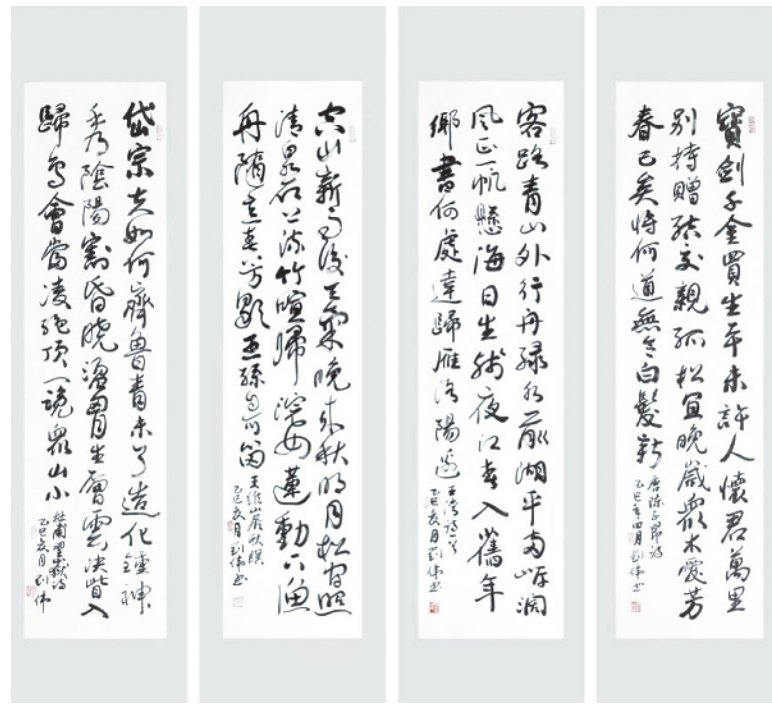 寶劍千金買生平未許人懷君萬里
別持贈結交親孤松宜晚歲眾木愛芳
春已矣將何道無令白髮新
唐陳子昂詩
乙巳年四月劉偉書
客路青山外行舟綠水前潮平兩岸闊
風正一帆懸海日生殘夜江春入舊年
鄉書何處達歸雁洛陽邊
王灣詩一首
乙巳夏月劉偉書
空山新雨後天氣晚來秋明月松間照
清泉石上流竹喧歸浣女蓮動下漁
舟隨意春芳歇王孫自可留
王維山居秋暝
乙巳夏月劉偉書
岱宗夫如何齊魯青未了造化鍾神
秀陰陽割昏曉盪胸生層雲決眥入
歸鳥會當凌絕頂一覽眾山小
杜甫望嶽詩
乙巳夏月劉偉